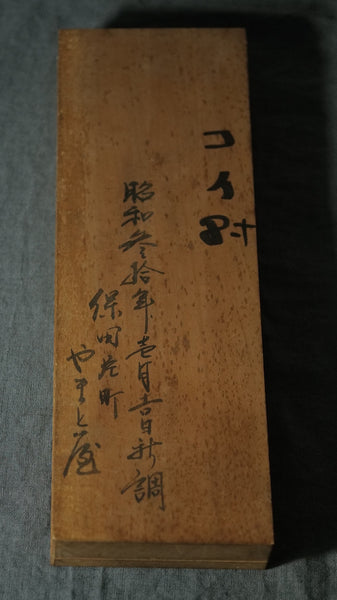 コイ
昭和参拾年壱月吉日新調
保田町
やまと屋